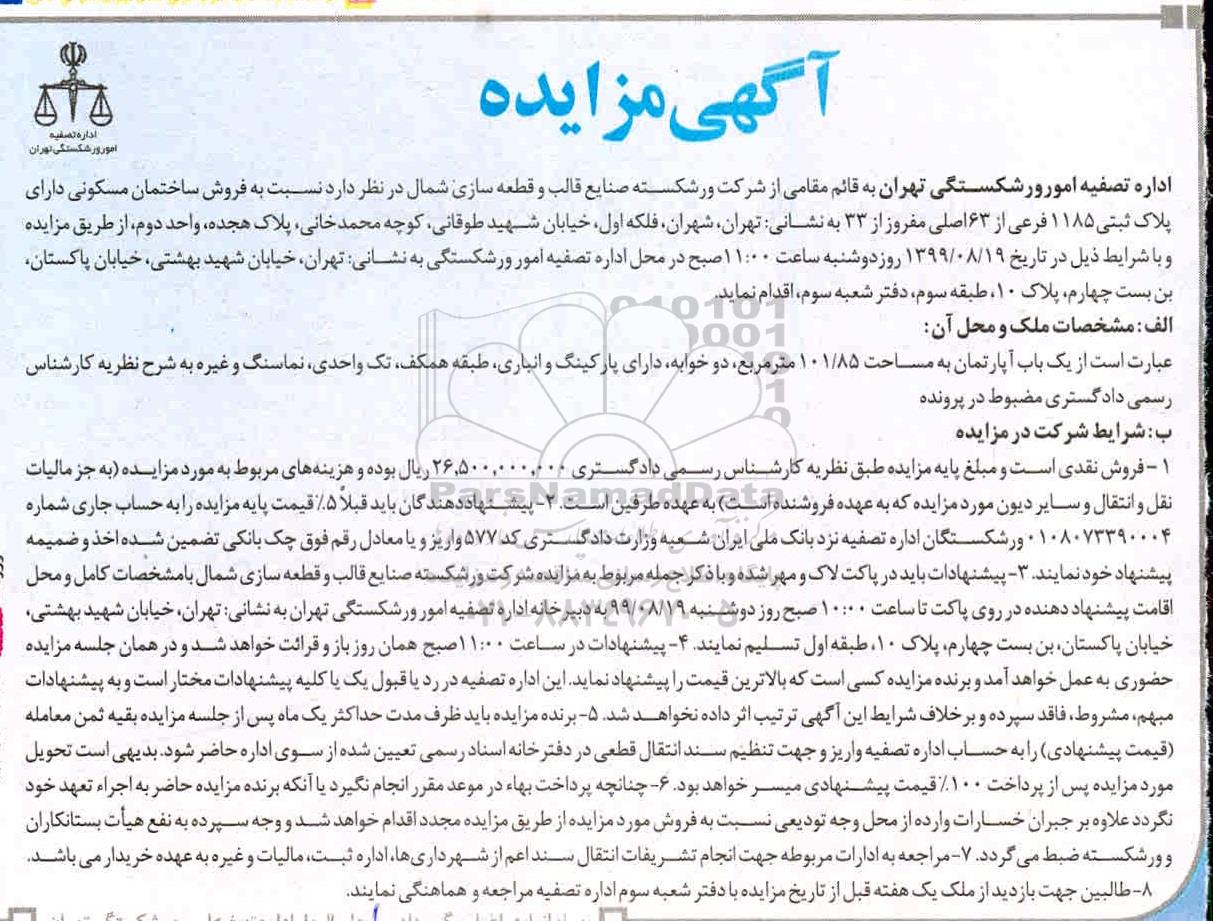 آگهی مزایده
اداره تصفیه
امور ورشکستگی تهران
اداره تصفیه امور ورشکستگی تهران به قائم مقامی از شرکت ورشکسته صنایع قالب و قطعه سازی شمال در نظر دارد نسبت به فروش ساختمان مسکونی دارای
پلاک ثبتی ۱۱۸۵ فرعی از ۶۳ اصلی مفروز از ۳۳ به نشانی: تهران، شهران، فلکه اول، خیابان شهید طوقانی، کوچه محمدخانی، پلاک هجده، واحد دوم، از طریق مزایده
و با شرایط ذیل در تاریخ ۱۳۹۹/۰۸/۱۹ روز دوشنبه ساعت ۱۱:۰۰ صبح در محل اداره تصفیه امور ورشکستگی به نشانی: تهران، خیابان شهید بهشتی، خیابان پاکستان،
بن بست چهارم، پلاک ۱۰، طبقه سوم، دفتر شعبه سوم، اقدام نماید.
الف: مشخصات ملک و محل آن:
عبارت است از یک باب آپارتمان به مساحت ۱۰۱/۸۵ مترمربع، دو خوابه، دارای پارکینگ و انباری، طبقه همکف، تک واحدی، نماسنگ و غیره به شرح نظریه کارشناس
رسمی دادگستری مضبوط در پرونده
ب: شرایط شرکت در مزایده
۱- فروش نقدی است و مبلغ پایه مزایده طبق نظریه کارشناس رسمی دادگستری ۲۶,۵۰۰,۰۰۰,۰۰۰ ریال بوده و هزینه‌های مربوط به مورد مزایده (به جز مالیات
نقل و انتقال و سایر دیون مورد مزایده که به عهده فروشنده است) به عهده طرفین است. ۲- پیشنهاددهندگان باید قبلاً ۵٪ قیمت پایه مزایده را به حساب جاری شماره
۰۱۰۸۰۷۳۳۹۰۰۰۴ ورشکستگان اداره تصفیه نزد بانک ملی ایران شعبه وزارت دادگستری کد ۵۷۷ واریز و یا معادل رقم فوق چک بانکی تضمین شده اخذ و ضمیمه
پیشنهاد خود نمایند. ۳- پیشنهادات باید در پاکت لاک و مهر شده و با ذکر جمله مربوط به مزایده شرکت ورشکسته صنایع قالب و قطعه سازی شمال بامشخصات کامل و محل
اقامت پیشنهاد دهنده در روی پاکت تا ساعت ۱۰:۰۰ صبح روز دوشنبه ۹۹/۰۸/۱۹ به دبیرخانه اداره تصفیه امور ورشکستگی تهران به نشانی: تهران، خیابان شهید بهشتی،
خیابان پاکستان، بن بست چهارم، پلاک ۱۰، طبقه اول تسلیم نمایند. ۴- پیشنهادات در ساعت ۱۱:۰۰ صبح همان روز باز و قرائت خواهد شد و در همان جلسه مزایده
حضوری به عمل خواهد آمد و برنده مزایده کسی است که بالاترین قیمت را پیشنهاد نماید. این اداره تصفیه در رد یا قبول یک یا کلیه پیشنهادات مختار است و به پیشنهادات
مبهم، مشروط، فاقد سپرده و برخلاف شرایط این آگهی ترتیب اثر داده نخواهد شد. ۵- برنده مزایده باید ظرف مدت حداکثر یک ماه پس از جلسه مزایده بقیه ثمن معامله
(قیمت پیشنهادی) را به حساب اداره تصفیه واریز و جهت تنظیم سند انتقال قطعی در دفترخانه اسناد رسمی تعیین شده از سوی اداره حاضر شود. بدیهی است تحویل
مورد مزایده پس از پرداخت ۱۰۰٪ قیمت پیشنهادی میسر خواهد بود. ۶- چنانچه پرداخت بهاء در موعد مقرر انجام نگیرد یا آنکه برنده مزایده حاضر به اجراء تعهد خود
نگردد علاوه بر جبران خسارات وارده از محل وجه تودیعی نسبت به فروش مورد مزایده از طریق مزایده مجدد اقدام خواهد شد و وجه سپرده به نفع هیأت بستانکاران
و ورشکسته ضبط می گردد. ۷- مراجعه به ادارات مربوطه جهت انجام تشریفات انتقال سند اعم از شهرداری‌ها، اداره ثبت، مالیات و غیره به عهده خریدار می باشد.
۸- طالبین جهت بازدید از ملک یک هفته قبل از تاریخ مزایده با دفتر شعبه سوم اداره تصفیه مراجعه و هماهنگی نمایند.
ParsNamadData